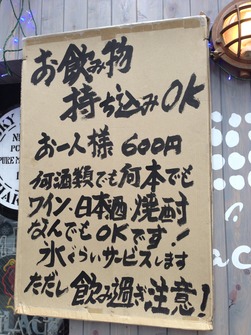 お飲み物
持ち込みOK
お一人様 600円
何酒類でも何本でも
ワイン、日本酒、焼酎
なんでもOKです!
氷ぐらいサービスします
ただし飲み過ぎ注意!